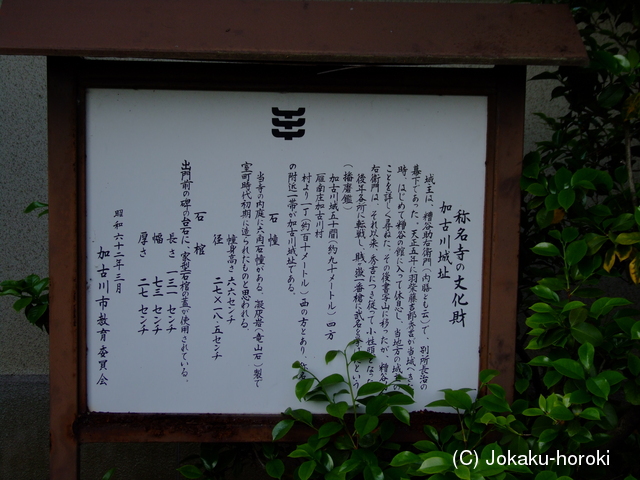 称名寺の文化財
加古川城址
城主は、糟谷助右衛門(内膳とも云)で、別所長治の
幕下であった。天正五年に羽柴藤吉郎秀吉が当城へきた
時、はじめて糟谷の館に入って休息し、当地方の城主の
ことを詳しく尋ねた。その後書写山に移ったが、糟谷助
右衛門は、それ以来、秀吉につき従って小性頭となり、
後年各所に転戦し、賤ヶ嶽三番槍に武名を
(播磨鑑)
加古川城 五十間(約九十メートル)四方
雁南庄加古川村
村より一丁(約百十メートル)西の方とあり、
の附近一帯が加古川城址である。
石幢
当寺の内庭に六角石幢がある。凝灰岩(竜山石)製で
室町時代初期に造られたものと思われる。
幢身高さ 六六センチ
径 二七×一八・五センチ
石棺
出門前の碑の台石に、家型石棺の蓋が使用されている。
長さ 一三一センチ
幅 七三センチ
厚さ 二七センチ
昭和六十二年三月
加古川市教育委員会
(C) Jokaku-horoki